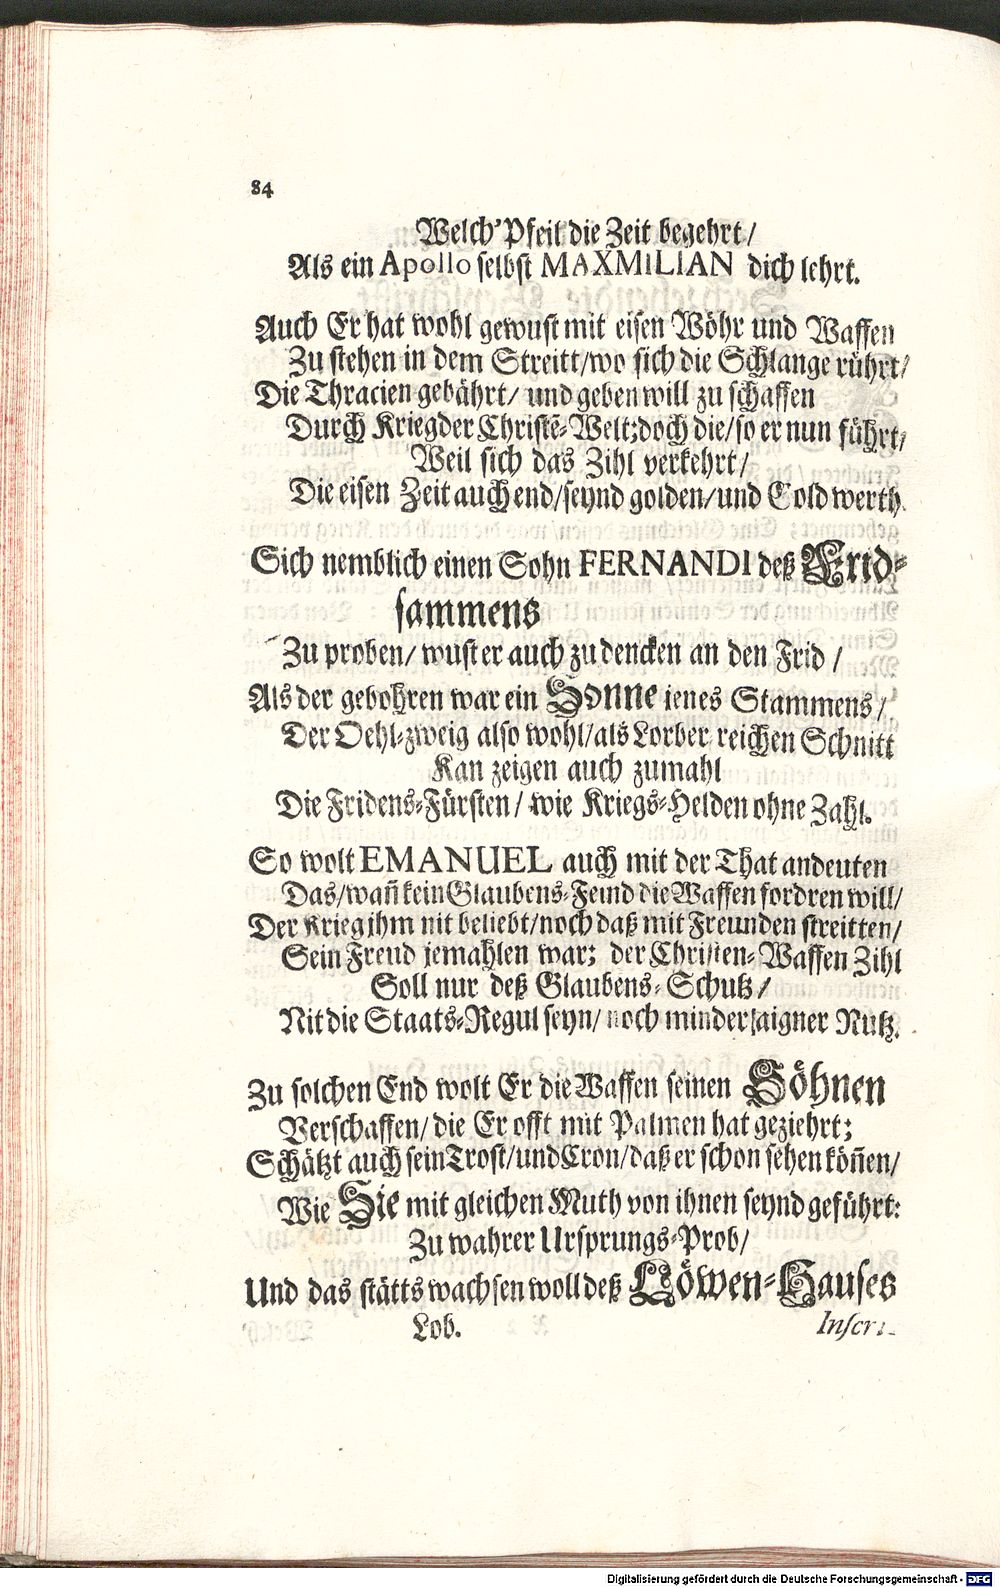 84
Welch' Pfeil die Zeit begehrt /
Als ein Apollo selbst MAXMILIAN dich lehrt.
Auch Er hat wohl gewust mit eisen Wöhr und Waffen
Zu stehen in dem Streitt / wo sich die Schlange rührt /
Die Thracien gebährt / und geben will zu schaffen
Durch Krieg der Christē-Welt; doch die / so er nun führt /
Weil sich das Zihl verkehrt /
Die eisen Zeit auch end / seynd golden / und Gold werth.
Sich nemblich einen Sohn FERNANDI deß Frid-
sammens
Zu proben / wust er auch zu dencken an den Frid /
Als der gebohren war ein Sonne jenes Stammens /
Der Oehl-zweig also wohl / als Lorber reichen Schnitt
Kan zeigen auch zumahl
Die Fridens-Fürsten / wie Kriegs-Helden ohne Zahl.
So wolt EMANUEL auch mit der That andeuten
Das / wañ kein Glaubens-Feind die Waffen fordren will /
Der Krieg ihm nit beliebt / noch daß mit Freunden streitten /
Sein Freud jemahlen war; der Christen-Waffen Zihl
Soll nur deß Glaubens-Schutz /
Nit die Staats-Regul seyn / noch minder aigner Nutz.
Zu solchen End wolt Er die Waffen seinen Söhnen
Verschaffen / die Er offt mit Palmen hat geziehrt;
Schätzt auch sein Trost / und Cron / daß er schon sehen köñen /
Wie Sie mit gleichen Muth von ihnen seynd geführt:
Zu wahrer Ursprungs-Prob /
Und das stätts wachsen woll deß Löwen-Hauses
Lob.
Inscri-
Digitalisierung gefördert durch die Deutsche Forschungsgemeinschaft - DFG